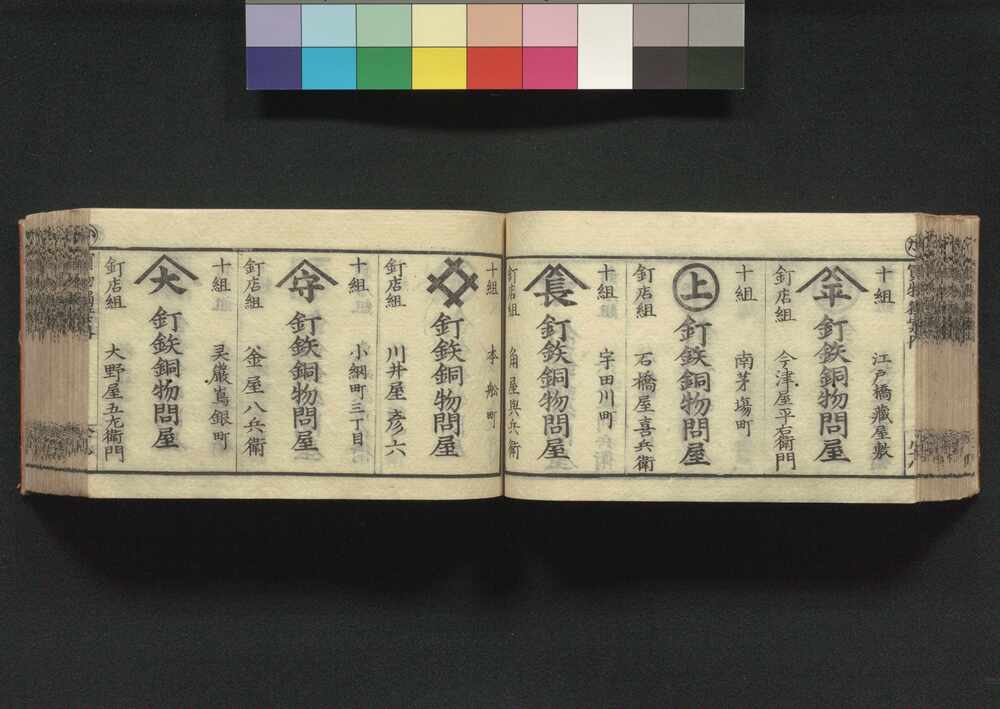 十組 江戸橋蔵屋敷
年 釘鉄銅物問屋
釘店組 今津屋平右衛門
十組 南茅場町
上 釘鉄銅物問屋
釘店組 石橋屋喜兵衛
十組 宇田川町
長 釘鉄銅物問屋
釘店組 角屋與兵衛
十組 本舩町
釘鉄銅物問屋
釘店組 川井屋彦六
十組 小網町三丁目
守 釘鉄銅物問屋
釘店組 釜屋八兵衛
十組 灵巖嶌銀町
大 釘鉄銅物問屋
釘店組 大野屋五左衛門